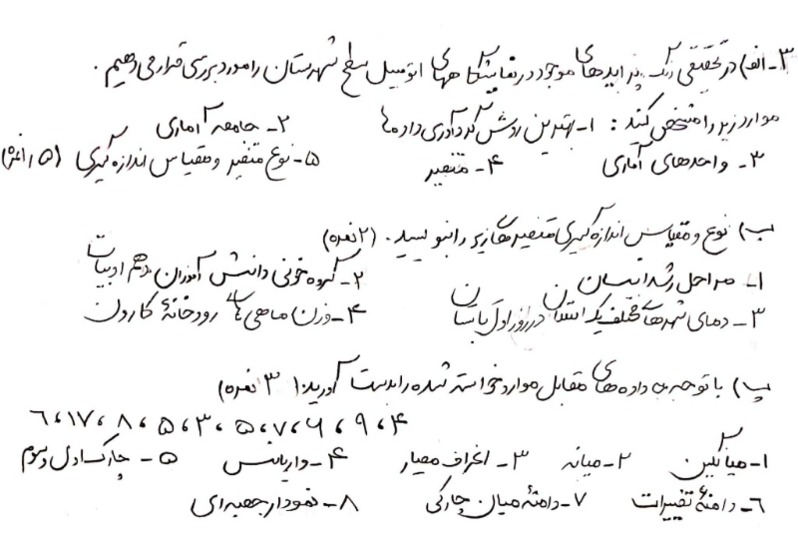 ۳- الف) در تحقیقی رنگ پرایدهای موجود در نمایشگاههای اتومبیل سطح شهرستان را مورد بررسی قرار می دهیم.
موارد زیر را مشخص کنید: ۱- بهترین روش گردآوری داده ها ۲- جامعه آماری
۳- واحدهای آماری ۴- متغیر ۵- نوع متغیر و مقیاس اندازه گیری (۱٫۵ نمره)
ب) نوع و مقیاس اندازه گیری متغیرهای زیر را بنویسید. (۲ نمره)
۱- مراحل رشد انسان ۲- گروه خونی دانش آموزان دهم ادبیات
۳- دمای شهرهای مختلف یک استان در روز اول تابستان ۴- وزن ماهی های رودخانهٔ کارون
پ) با توجه به داده های مقابل موارد خواسته شده را بدست آورید: (۳ نمره)
۶، ۱۷، ۸، ۵، ۳، ۵، ۷، ۶، ۹، ۴
۱- میانگین ۲- میانه ۳- انحراف معیار ۴- واریانس ۵- چارک اول و سوم
۶- دامنهٔ تغییرات ۷- دامنهٔ میان چارکی ۸- نمودار جعبه ای